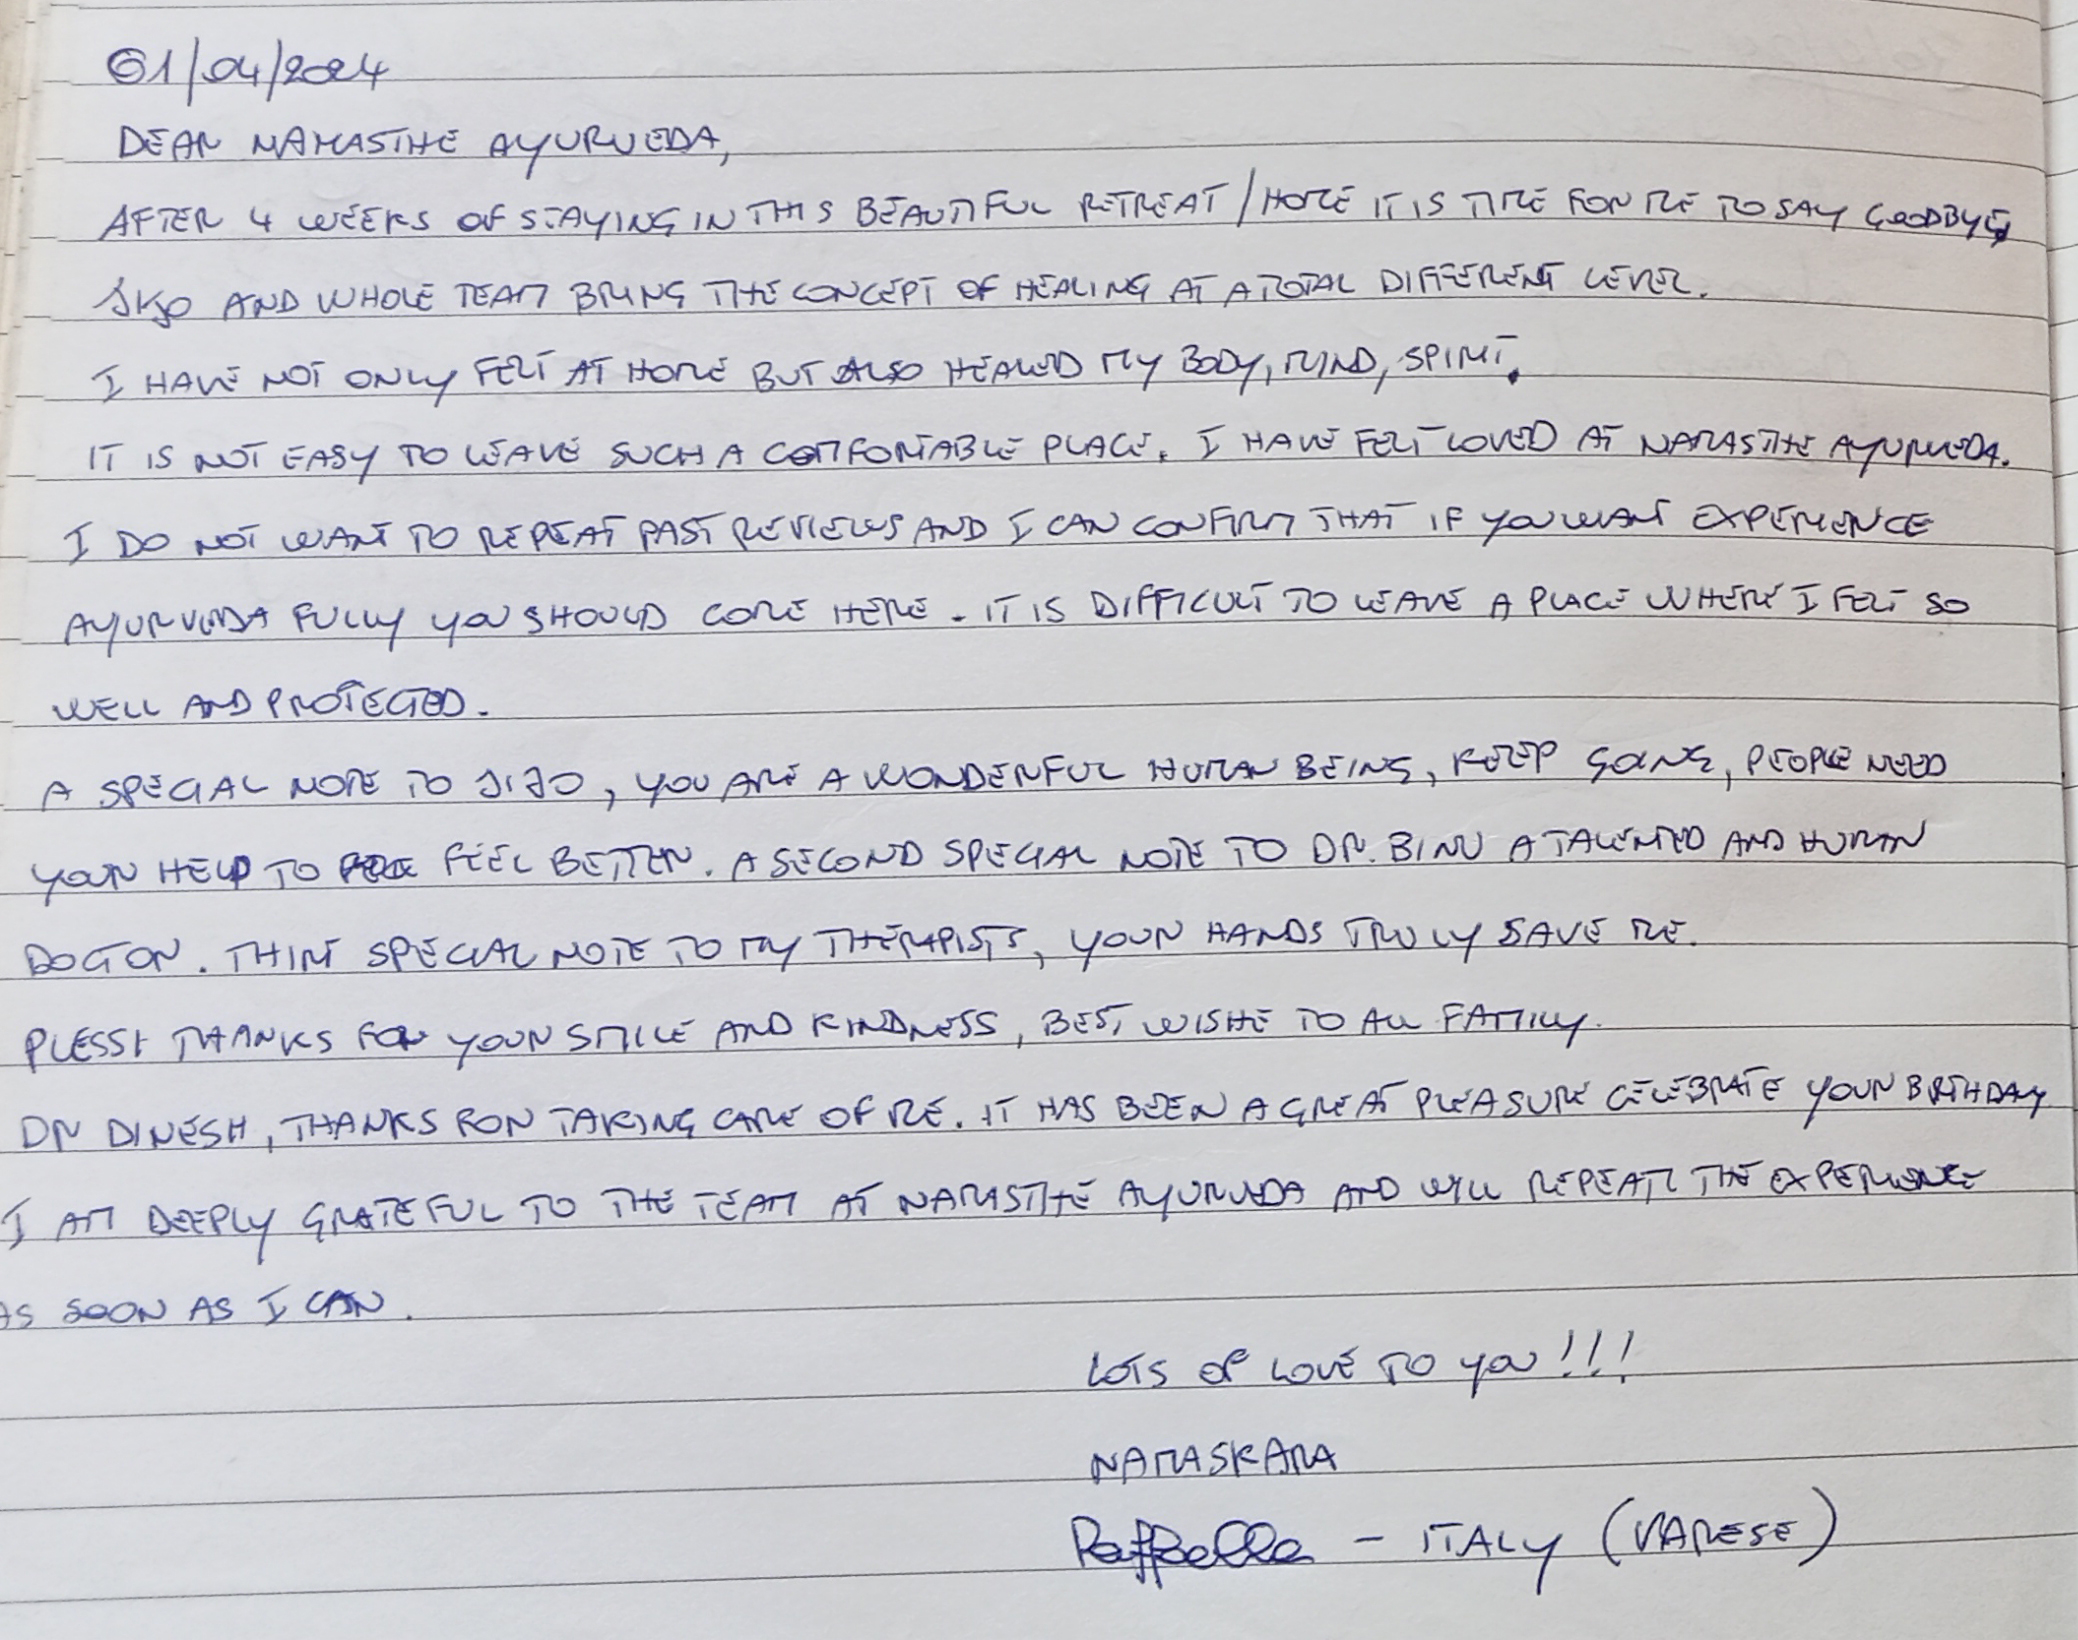 01/04/2024
DEAR NAMASTHE AYURVEDA,
AFTER 4 WEEKS OF STAYING IN THIS BEAUTIFUL RETREAT/HOME IT IS TIME FOR ME TO SAY GOODBYE,
AND WHOLE TEAM BRING THE CONCEPT OF HEALING AT A TOTAL DIFFERENT LEVEL.
I HAVE NOT ONLY FELT AT HOME BUT ALSO HEALED MY BODY, MIND, SPIRIT.
IT IS NOT EASY TO LEAVE SUCH A COMFORTABLE PLACE. I HAVE FELT LOVED AT NAMASTHE AYURVEDA.
I DO NOT WANT TO REPEAT PAST REVIEWS AND I CAN CONFIRM THAT IF YOU WANT EXPERIENCE
AYURVEDA FULLY YOU SHOULD COME HERE. IT IS DIFFICULT TO LEAVE A PLACE WHERE I FELT SO
WELL AND PROTECTED.
A SPECIAL NOTE TO JIJO, YOU ARE A WONDERFUL HUMAN BEING, KEEP GOING, PEOPLE NEED
YOUR HELP TO FEEL BETTER. A SECOND SPECIAL NOTE TO DR. BINU A TALENTED AND HUMAN
DOCTOR. THIRD SPECIAL NOTE TO MY THERAPISTS, YOUR HANDS TRULY SAVE ME.
THANKS FOR YOUR SMILE AND KINDNESS, BEST WISHE TO ALL FAMILY.
DR DINESH, THANKS FOR TAKING CARE OF ME. IT HAS BEEN A GREAT PLEASURE CELEBRATE YOUR BIRTHDAY
I AM DEEPLY GRATEFUL TO THE TEAM AT NAMASTHE AYURVEDA AND WILL REPEAT THE EXPERIENCE
AS SOON AS I CAN.
LOTS OF LOVE TO YOU!!!
NAMASKARA
Raffaella - ITALY (VARESE)